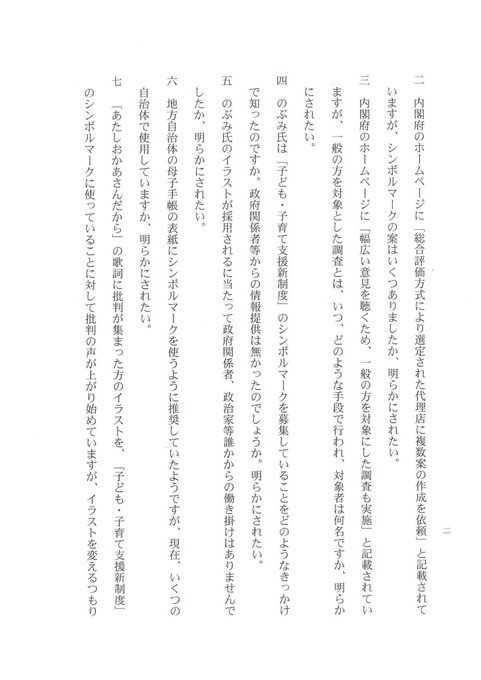 二　内閣府のホームページに「総合評価方式により選定された代理店に複数案の作成を依頼」と記載されて
いますが、シンボルマークの案はいくつありましたか、明らかにされたい。
三　内閣府のホームページに「幅広い意見を聴くため、一般の方を対象にした調査も実施」と記載されてい
ますが、一般の方を対象とした調査とは、いつ、どのような手段で行われ、対象者は何名ですか、明らか
にされたい。
四　のぶみ氏は「子ども・子育て支援新制度」のシンボルマークを募集していることをどのようなきっかけ
で知ったのですか。政府関係者等からの情報提供は無かったのでしょうか。明らかにされたい。
五　のぶみ氏のイラストが採用されるに当たって政府関係者、政治家等誰かからの働き掛けはありませんで
したか、明らかにされたい。
六　地方自治体の母子手帳の表紙にシンボルマークを使うように推奨していたようですが、現在、いくつの
自治体で使用していますか、明らかにされたい。
七　「あたしおかあさんだから」の歌詞に批判が集まった方のイラストを、「子ども・子育て支援新制度」
のシンボルマークに使っていることに対して批判の声が上がり始めていますが、イラストを変えるつもり
二